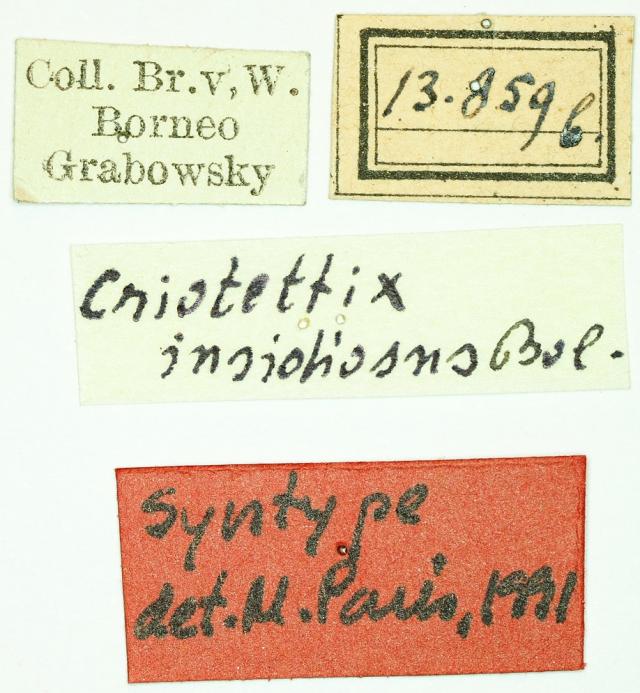 Coll. Br. v, W.
Borneo
Grabowsky
13.859
b.
Criotettix
insidiosus Bol.
Syntype
det. M. Paris, 1991